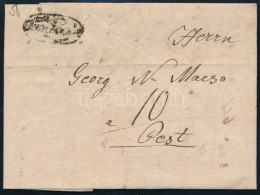 Herrn
Georg N Maeso
10
a
Pest